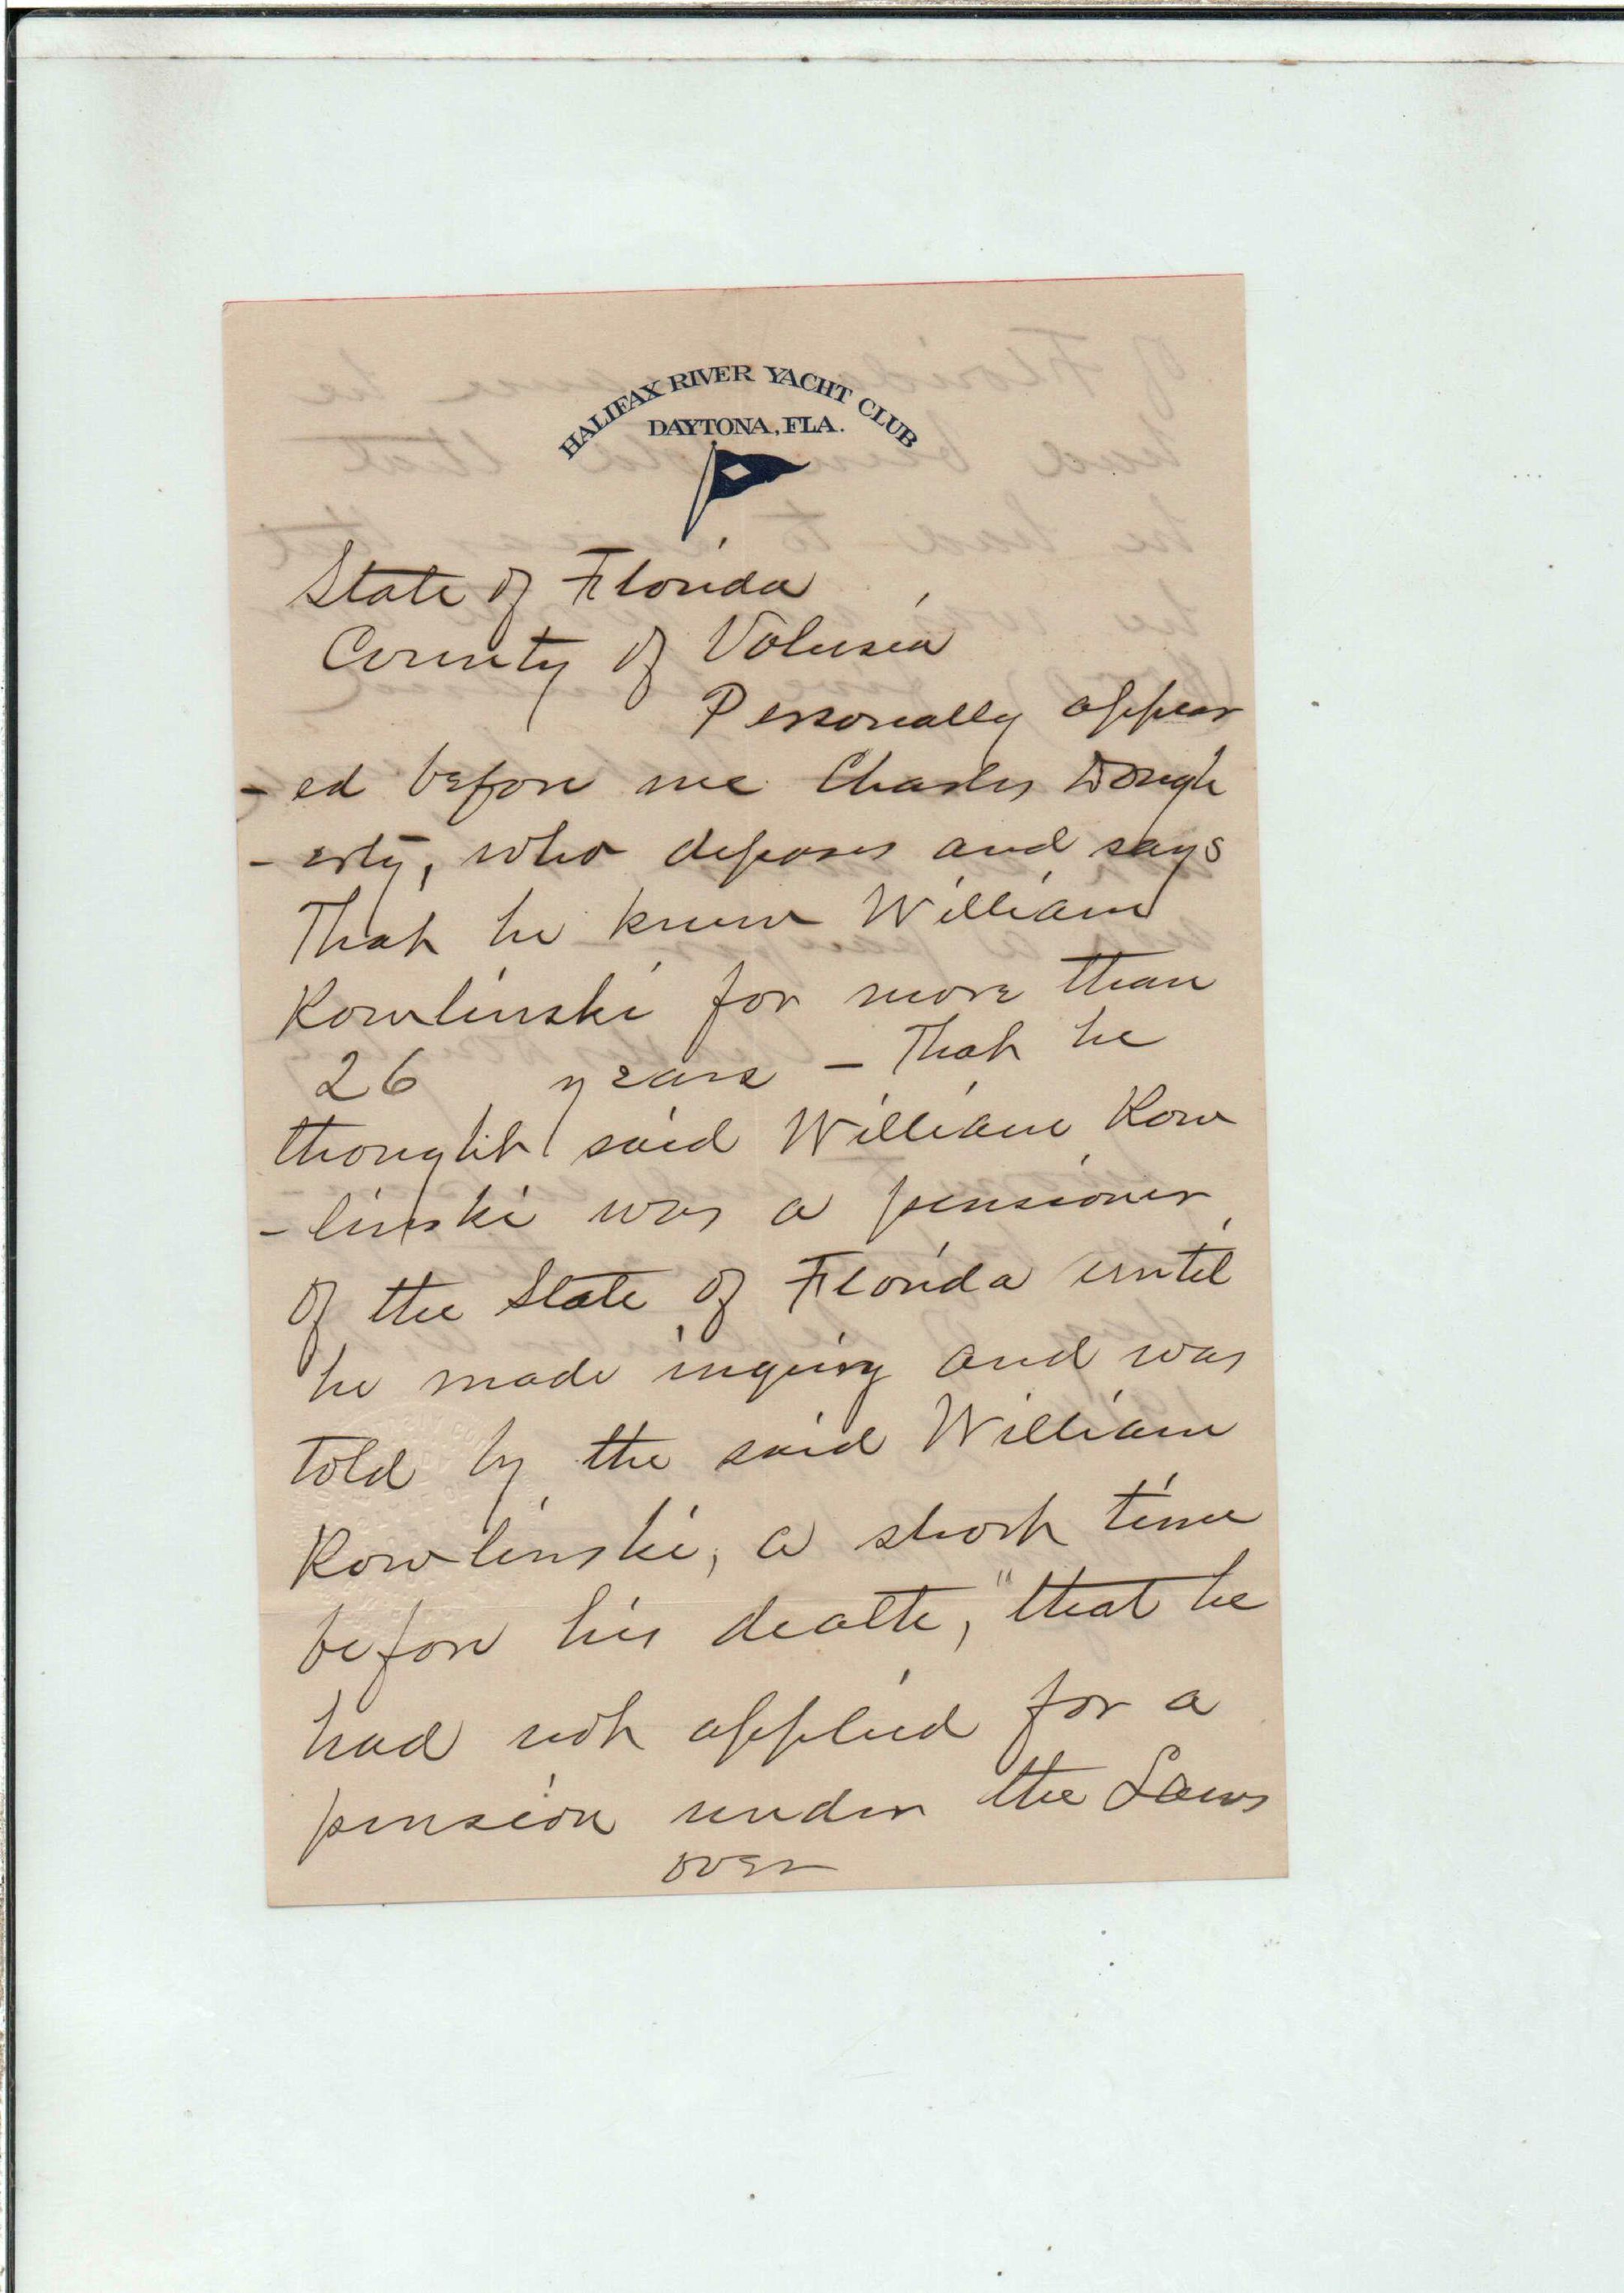 HALIFAX RIVER YACHT CLUB
DAYTONA, FLA.
State of Florida
County of Volusia
Personally appear
- ed before me Charles Dough
- erty, who deposes and says
That he knew William
Rowlinski for more than
26 years - That he
thought said William Row
- linski was a pensioner
of the State of Florida until
he made inquiry and was
told by the said William
Rowlinski, a short time
before his death, "that he
had not applied for a
pension under the Laws
over